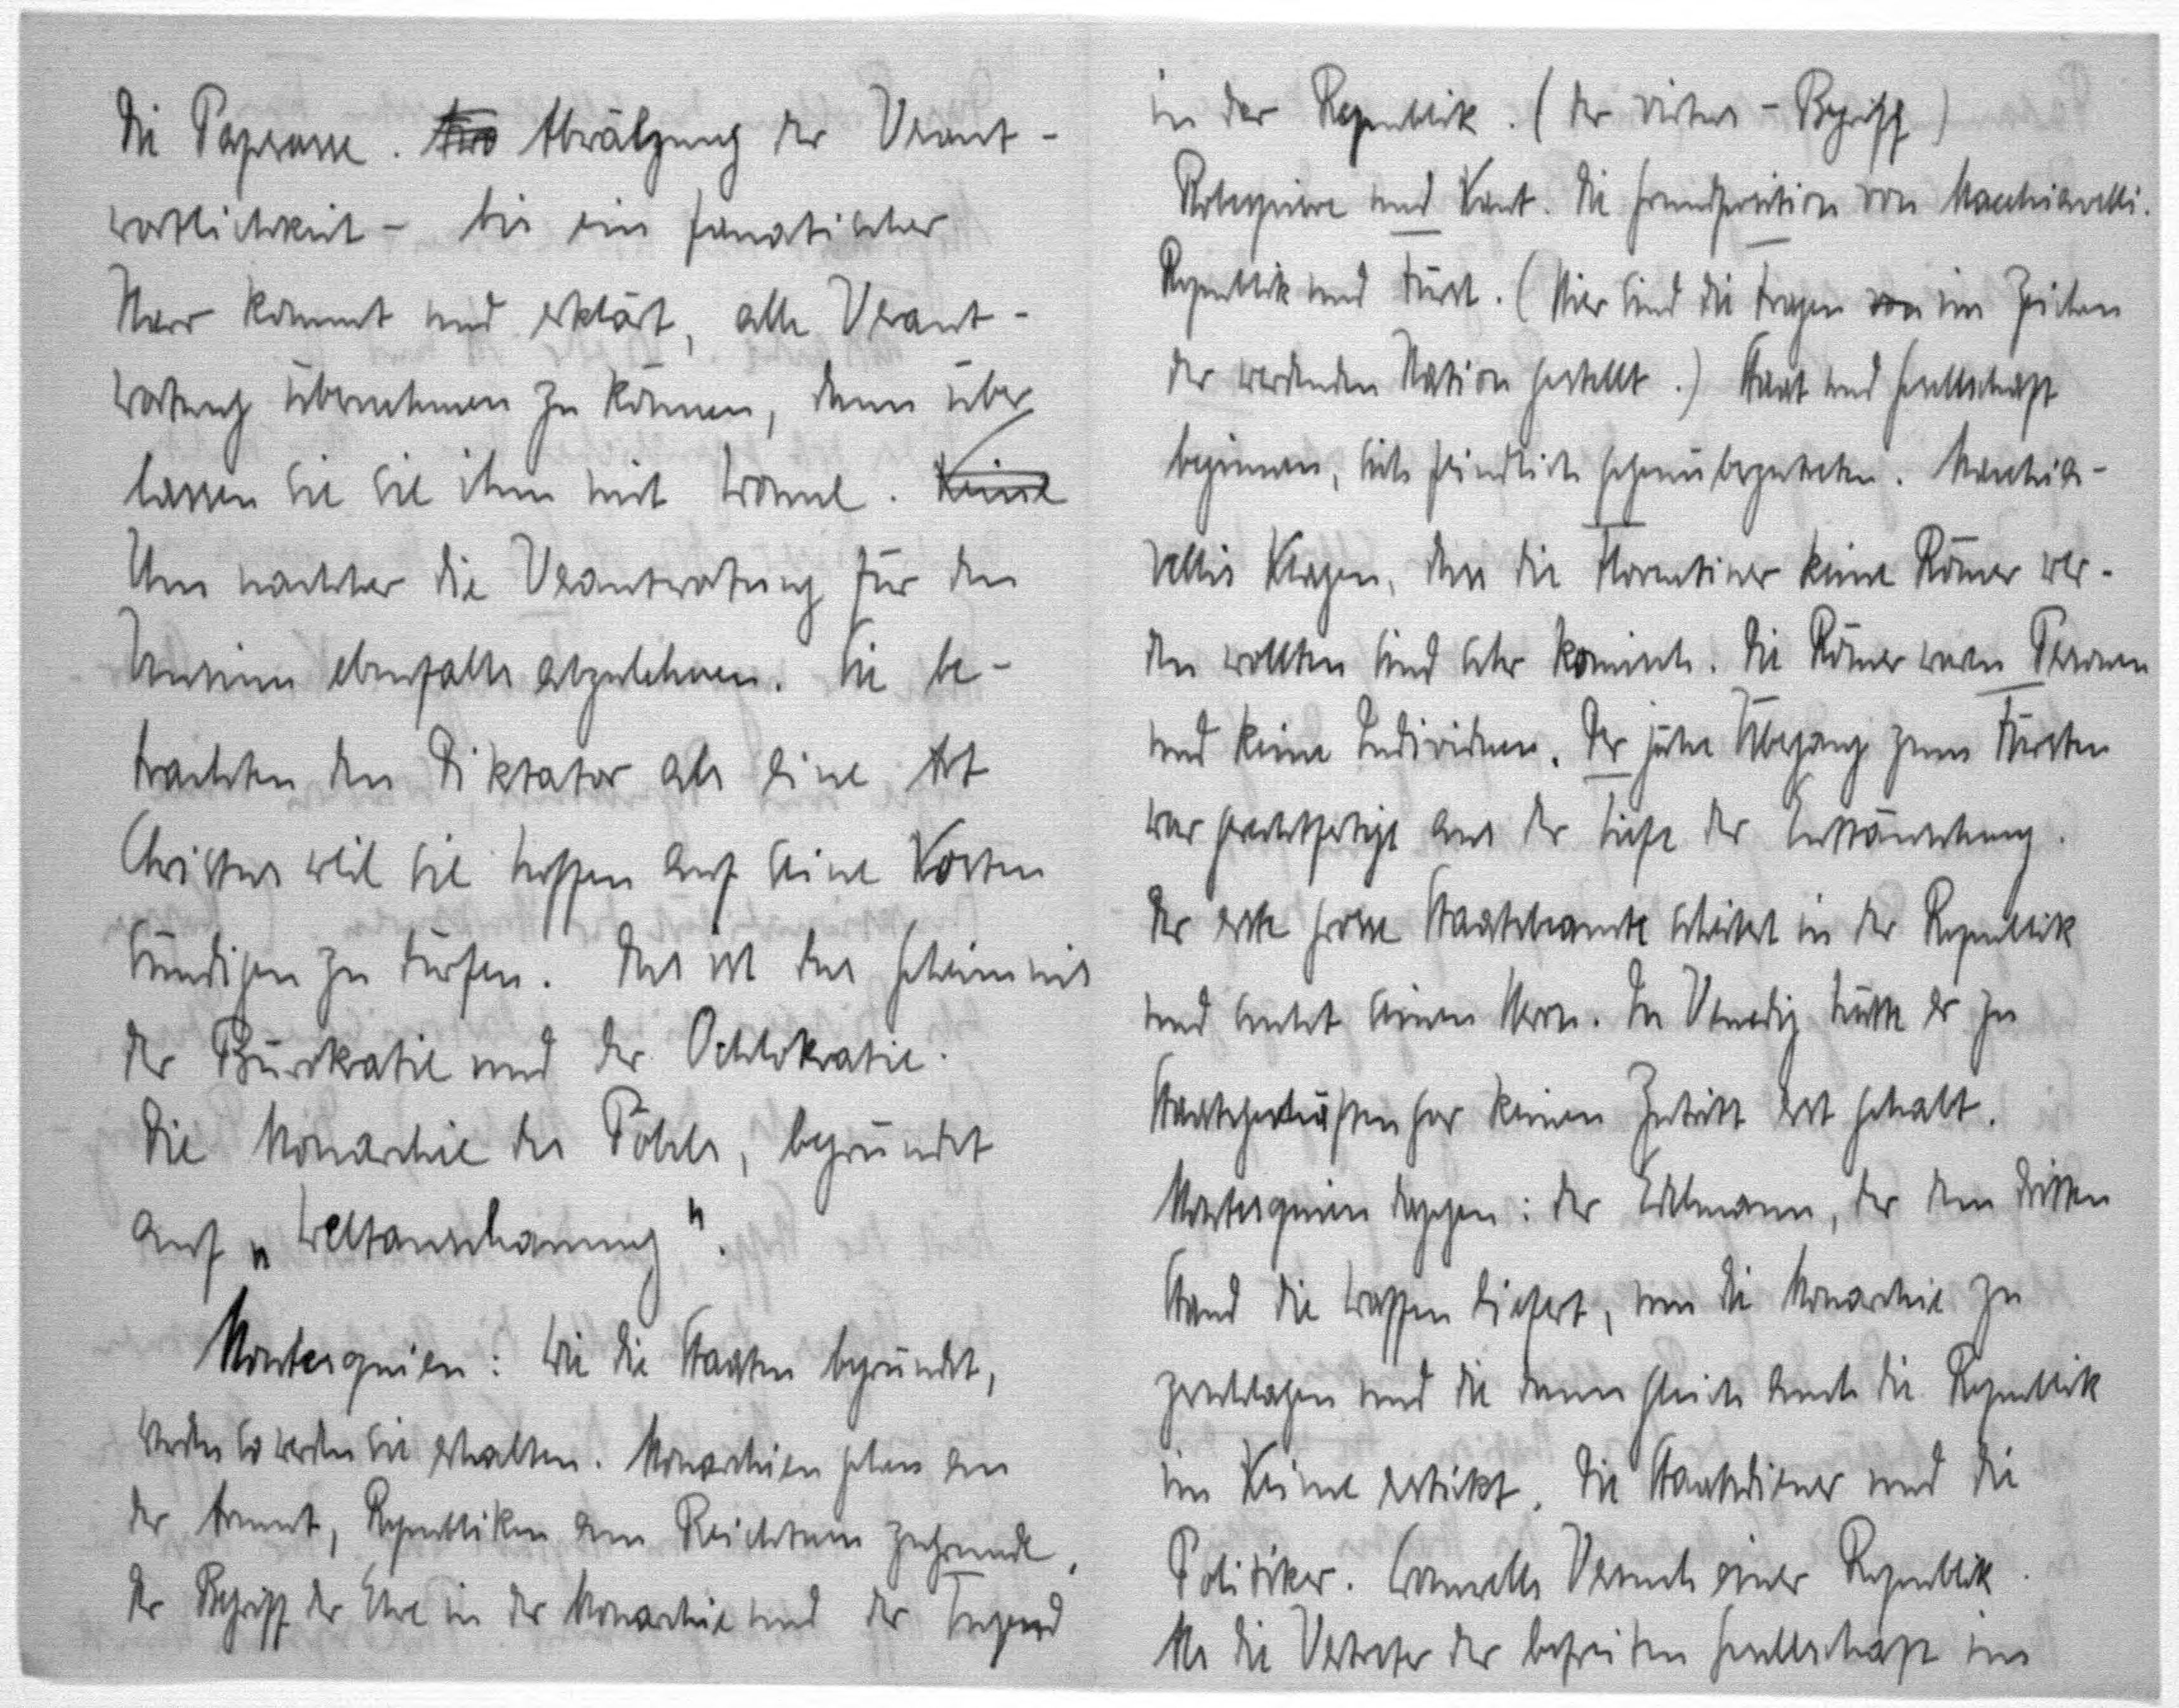 die Paperasse. Abwälzung der Verant-
wortlichkeit - bis ein fanatischer
Narr kommt und erklärt, alle Verant-
wortung übernehmen zu können, dann über
lassen sie sie ihm mit Wonne. Keine
Um nachher die Verantwortung für den
Unsinn ebenfalls abzulehnen. Sie be-
trachten den Diktator als eine Art
Christus weil sie hoffen auf seine Kosten
sündigen zu dürfen. Das ist das Geheimnis
der Bürokratie und der Ochlokratie.
Die Monarchie des Pöbels, begründet
auf „Weltanschauung".
Montesquieu: Wie die Staaten begründet,
werden so werden sie erhalten. Monarchien gehen an
der Armut, Republiken am Reichtum zugrunde.
Der Begriff der Ehre in der Monarchie und der Tugend
in der Republik. (der virtus-Begriff)
Robespierre und Kant. Die Grundposition von Macchiavelli.
Republik und Fürst. (Hier sind die Fragen von im Zeichen
der werdenden Nation gestellt.) Staat und Gesellschaft
beginnen, sich feindlich gegenüberzutreten. Macchia-
vellis Klagen, dass die Florentiner keine Römer wer-
den wollten sind sehr komisch. Die Römer waren Personen
und keine Individuen. Der jähe Übergang zum Fürsten
war gerechtfertigt aus der Tiefe der Enttäuschung.
Der erste grosse Staatsbeamte scheitert in der Republik
und sucht seinen Herrn. In Venedig hätte er zu
Staatsgeschäften gar keinen Zutritt erst gehabt.
Montesquieu dagegen: der Edelmann, der dem dritten
Stand die Waffen liefert, um die Monarchie zu
zerschlagen und die dann gleich auch die Republik
im Keime erstickt. Die Staatsdiener und die
Politiker. Cromwells Versuch einer Republik.
Als die Vertreter der befreiten Gesellschaft im